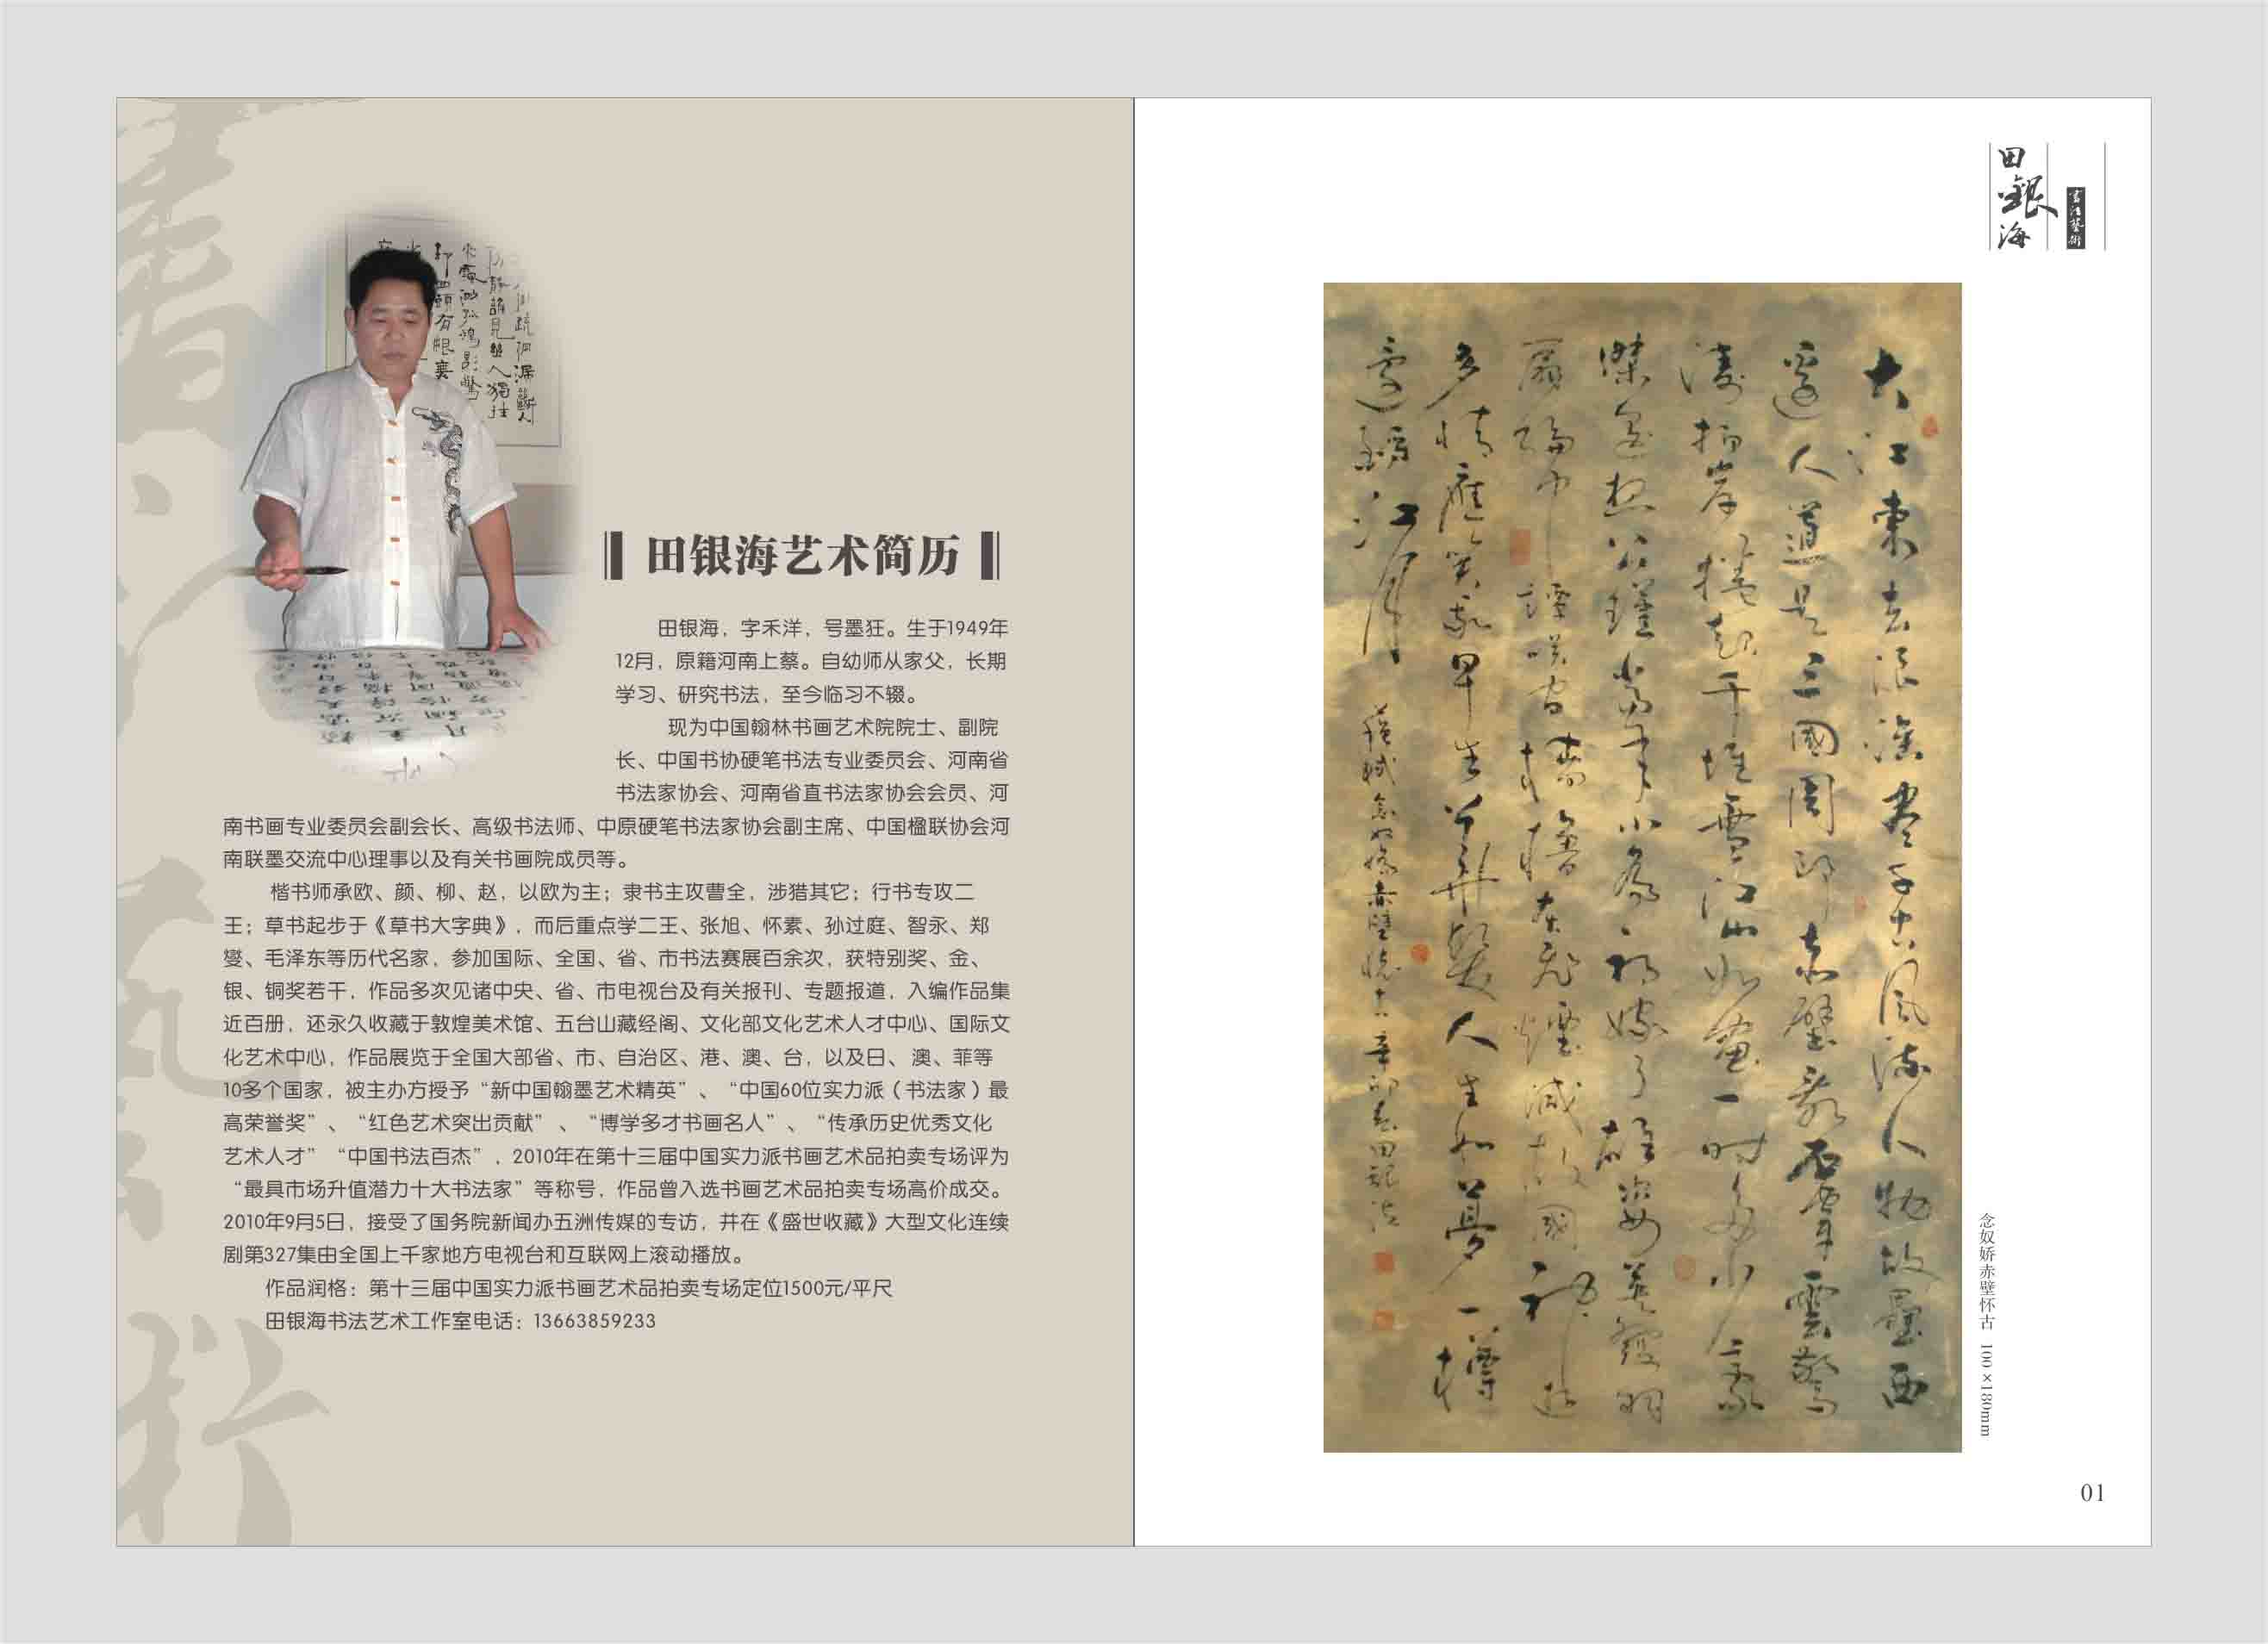 田银海艺术简历
田银海，字禾洋，号墨狂。生于1949年
12月，原籍河南上蔡。自幼师从家父，长期
学习、研究书法，至今临习不辍。
现为中国翰林书画艺术院院士、副院
长、中国书协硬笔书法专业委员会、河南省
书法家协会、河南省直书法家协会会员、河
南书画专业委员会副会长、高级书法师、中原硬笔书法家协会副主席、中国楹联协会河
南联墨交流中心理事以及有关书画院成员等。
楷书师承欧、颜、柳、赵，以欧为主；隶书主攻曹全，涉猎其它；行书专攻二
王；草书起步于《草书大字典》，而后重点学二王、张旭、怀素、孙过庭、智永、郑
燮、毛泽东等历代名家，参加国际、全国、省、市书法赛展百余次，获特别奖、金、
银、铜奖若干，作品多次见诸中央、省、市电视台及有关报刊、专题报道，入编作品集
近百册，还永久收藏于敦煌美术馆、五台山藏经阁、文化部文化艺术人才中心、国际文
化艺术中心，作品展览于全国大部省、市、自治区、港、澳、台，以及日、澳、菲等
10多个国家，被主办方授予“新中国翰墨艺术精英”、“中国60位实力派（书法家）最
高荣誉奖”、“红色艺术突出贡献”、“博学多才书画名人”、“传承历史优秀文化
艺术人才”“中国书法百杰”，2010年在第十三届中国实力派书画艺术品拍卖专场评为
“最具市场升值潜力十大书法家”等称号，作品曾入选书画艺术品拍卖专场高价成交。
2010年9月5日，接受了国务院新闻办五洲传媒的专访，并在《盛世收藏》大型文化连续
剧第327集由全国上千家地方电视台和互联网上滚动播放。
作品润格：第十三届中国实力派书画艺术品拍卖专场定位1500元/平尺
田银海书法艺术工作室电话：13663859233
田銀海
書法藝術
大江東去浪淘盡千古風流人物故壘西
邊人道是三國周郎赤壁亂石穿雲驚
濤拍岸捲起千堆雪江山如畫一時多少豪
傑遙想公瑾當年小喬初嫁了雄姿英發羽
扇綸巾談笑間檣櫓灰飛煙滅故國神遊
多情應笑我早生華髮人生如夢一樽
還酹江月
蘇軾念奴嬌赤壁懷古辛卯春田銀海
念奴娇赤壁怀古 100×180mm
01